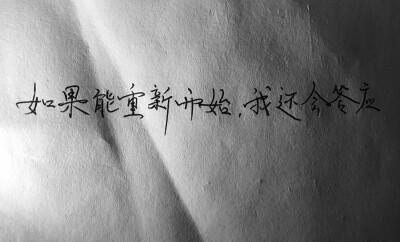 如果能重新开始，我还会答应